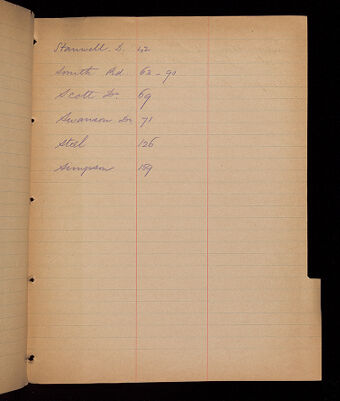 Stanwell. S. 42
Smith Rd 62 - 90
Scott Dr. 69
Swanson Dr 71
Steel 126
Simpson 159